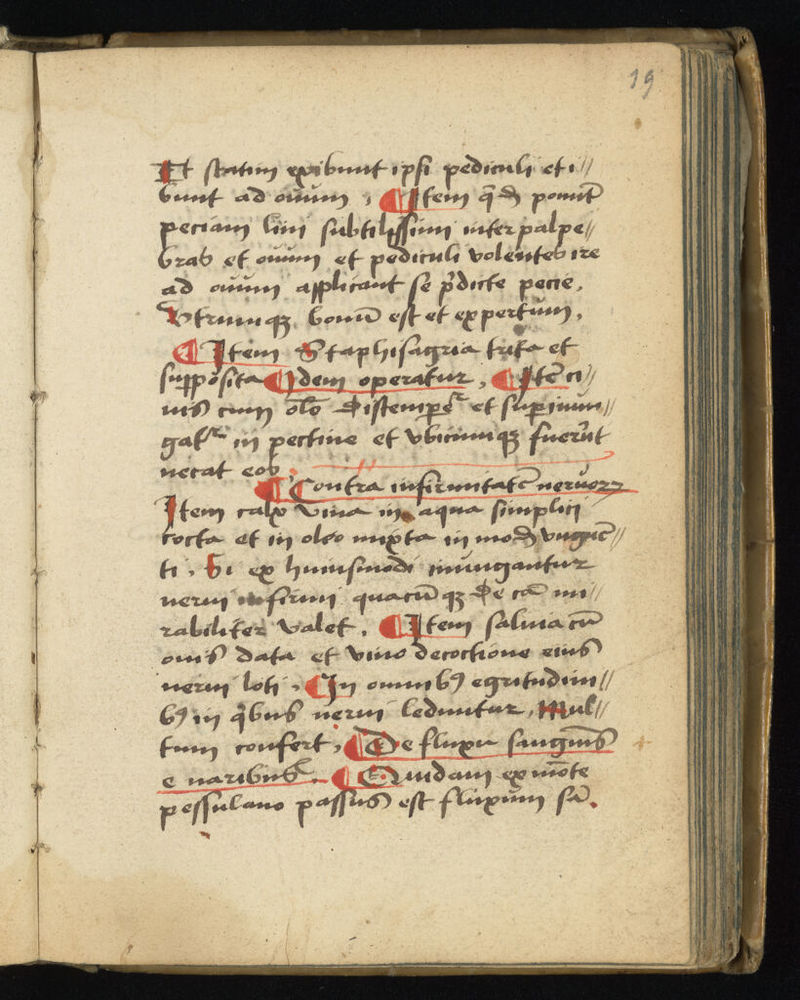 19
Et statim exibunt ipsi pediculi et i//
bunt ad ouum , ¶ Item qn̄ponūt
peciam lini subtilissimi inter palpe//
bras et ouum et pediculi volentes ire
ad ouum applicant se p̄dicte pecie.
Vtrumqꝫ bonū est et expertum.
¶ Item Staphisagria trita et
supposita ¶ Idem operatur , ¶ Itē ci//
nis cum olō distempeꝛ̄ et supinun//
gatꝛ in pectine et vbicumqꝫ fuerūt
necat eos
¶ Contra infirmitatē neruoꝝ
Item calx viua in aqua simplici
cocta et in oleo mixta in mod̄ vngūe//
ti . Si ex huiusmodi inungantur
nerui infirmi quacūqꝫ de cā mi//
rabiliter valet . ¶ Item saluia cū
ouis data et vino decoctione eius
nerui loti , ¶ In omnibꝰ egritudini//
bꝰ in qͥbus nerui leduntur , Mul//
tum confert , ¶ De fluxu sanguīs
e naribus . ¶ Quidam ex mōte
pessulano passus est fluxum sā.